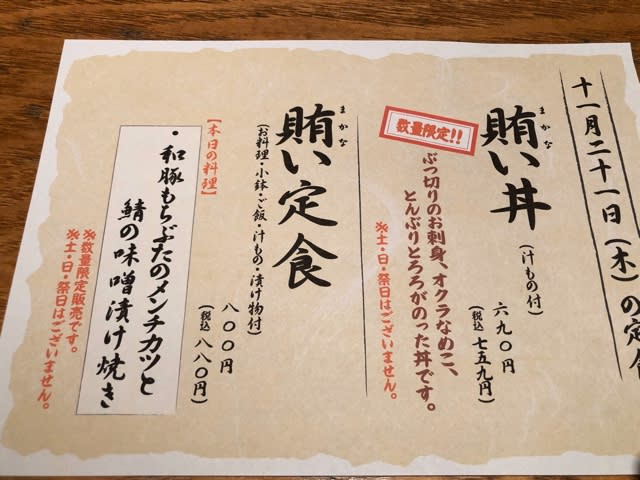 十一月二十一日(木)の定食
数量限定!!
まかな
賄い丼
(汁もの付)
六九〇円
(税込 七五九円)
ぶつ切りのお刺身、オクラなめこ、
とんぶりとろろがのった丼です。
※土・日・祭日はございません。
まかな
賄い定食
(お料理・小鉢・ご飯・汁もの・漬け物付)
八〇〇円
(税込 八八〇円)
【本日の料理】
・和豚もちぶたのメンチカツと
鯖の味噌漬け焼き
※数量限定販売です。
※土・日・祭日はございません。